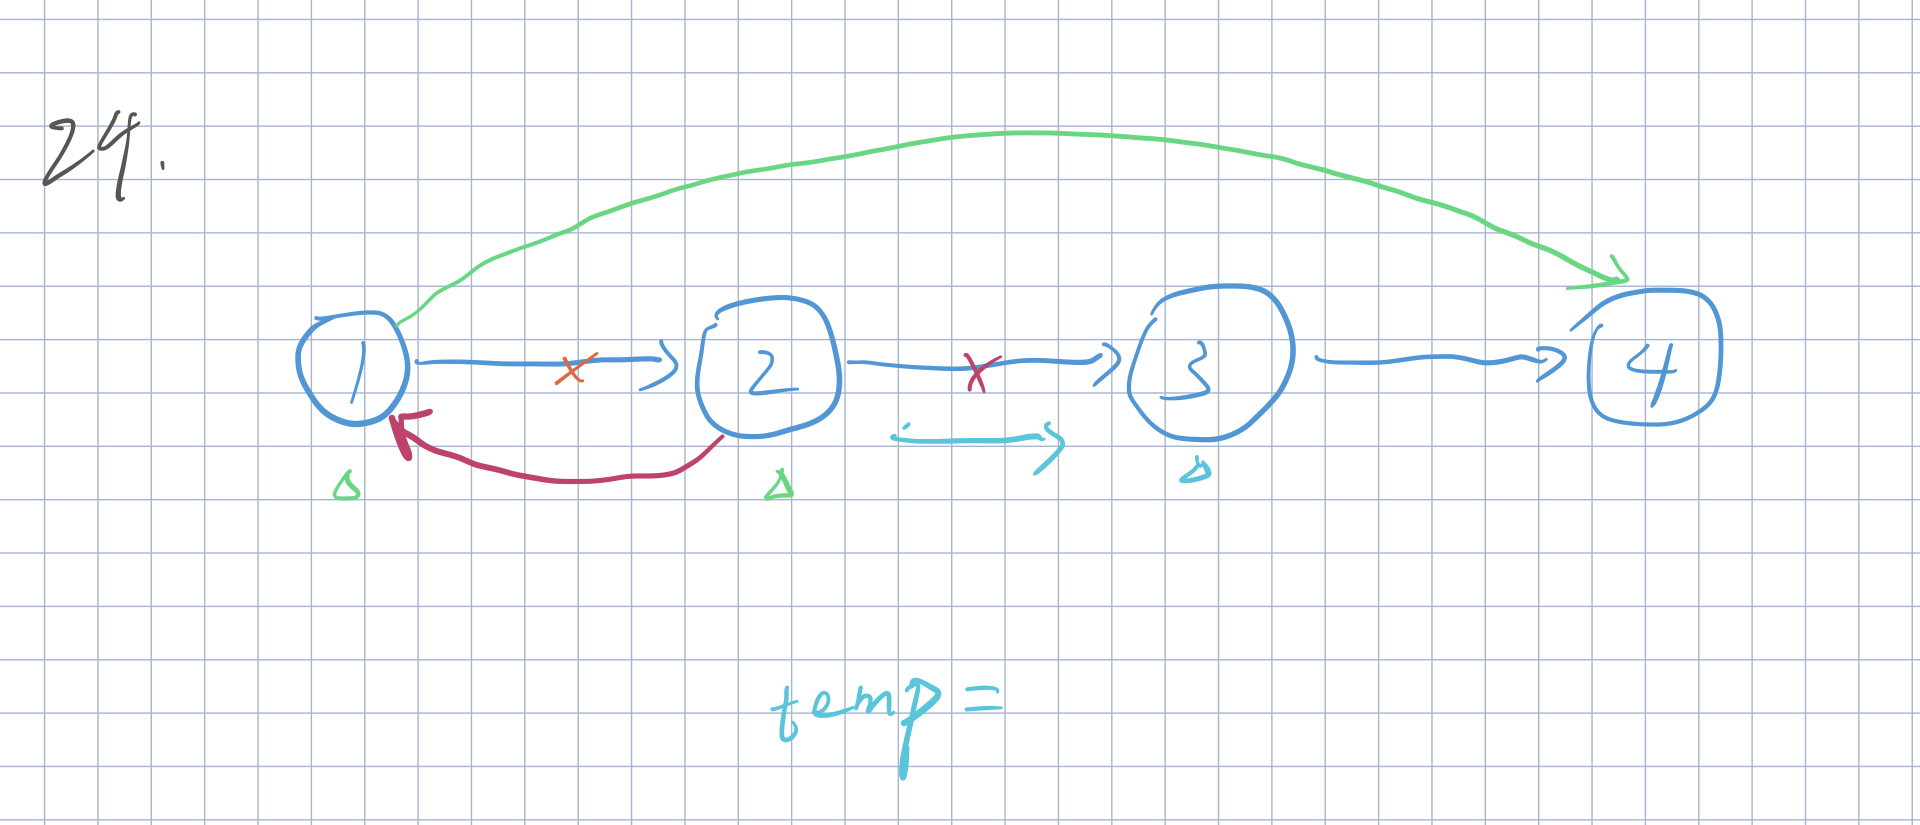 24.
1 2 3 4
temp =